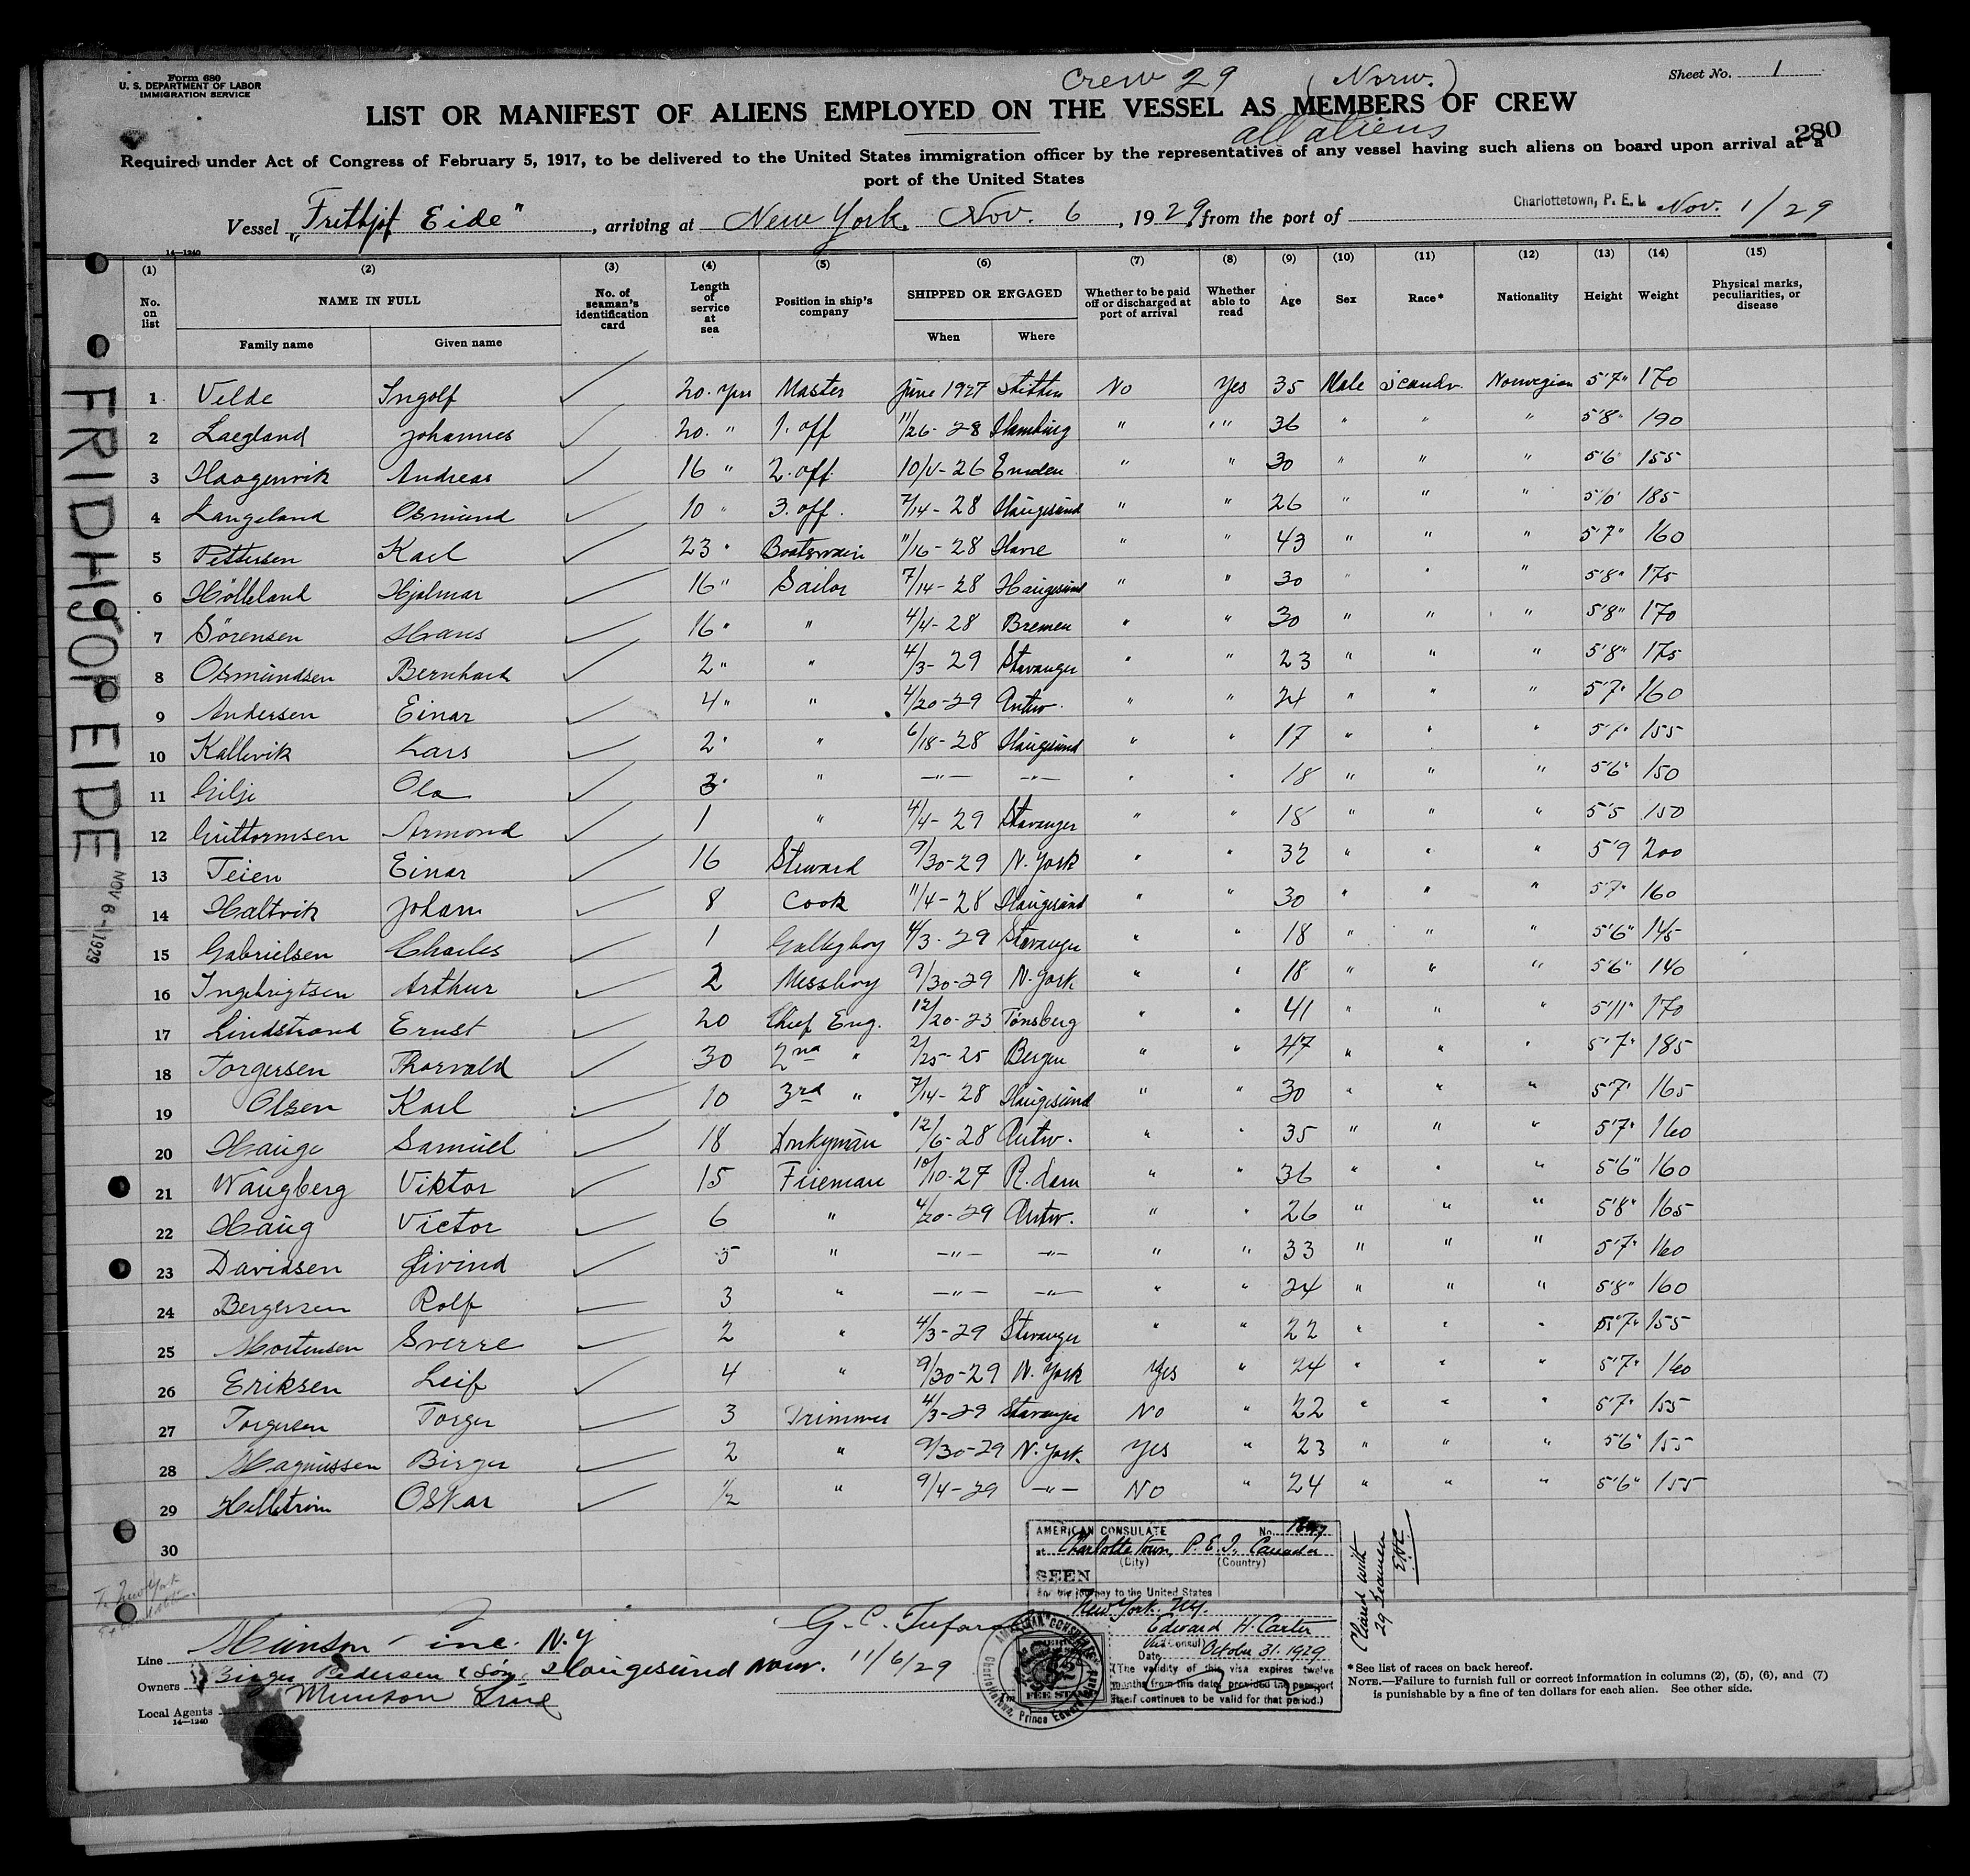 Form 680
U. S. DEPARTMENT OF LABOR
IMMIGRATION SERVICE
Crew 29 (Norw.)
Sheet No. 1
LIST OR MANIFEST OF ALIENS EMPLOYED ON THE VESSEL AS MEMBERS OF CREW
all aliens
280
Required under Act of Congress of February 5, 1917, to be delivered to the United States immigration officer by the representatives of any vessel having such aliens on board upon arrival at a
port of the United States
Vessel "Frithjof Eide", arriving at New York, Nov. 6, 1929, from the port of Charlottetown, P. E. I. Nov. 1/29
14—1240
(1) (2) (3) (4) (5) (6) (7) (8) (9) (10) (11) (12) (13) (14) (15)
No. on list NAME IN FULL No. of seaman's identification card Length of service at sea Position in ship's company SHIPPED OR ENGAGED Whether to be paid off or discharged at port of arrival Whether able to read Age Sex Race* Nationality Height Weight Physical marks, peculiarities, or disease
Family name Given name When Where
1 Velde Ingolf 20 yrs Master June 1927 Stettin No Yes 35 Male Scandv. Norwegian 5'7" 170
2 Laegland Johannes 20 " 1. off 11/26-28 Hamburg " " 36 " " " 5'8" 190
3 Haagenvik Andreas 16 " 2. off 10/4-26 Emden " " 30 " " " 5'6" 155
4 Langeland Osmund 10 " 3. off. 7/14-28 Haugesund " " 26 " " " 5'10" 185
5 Pettersen Karl 23 " Boatswain 11/16-28 Havre " " 43 " " " 5'7" 160
6 Hölleland Hjalmar 16 " Sailor 7/14-28 Haugesund " " 30 " " " 5'8" 175
7 Sörensen Hans 16 " " 4/4-28 Bremen " " 30 " " " 5'8" 170
8 Osmundsen Bernhard 2 " " 4/3-29 Stavanger " " 23 " " " 5'8" 175
9 Andersen Einar 4 " " 4/20-29 Antw. " " 24 " " " 5'7" 160
10 Kallevik Lars 2 " " 6/18-28 Haugesund " " 17 " " " 155
11 Gilje Ola " —"— —"— " " 18 " " " 5'6" 150
12 Guttormsen Armond 1 " 4/4-29 Stavanger " " 18 " " " 5'5 150
13 Teien Einar 16 Steward 9/30-29 N. York " " 32 " " " 5'9 200
14 Haltvik Johan 8 Cook 11/4-28 Haugesund " " 30 " " " 5'7" 160
15 Gabrielsen Charles 1 Galleyboy 4/3-29 Stavanger " " 18 " " " 5'6" 145
16 Ingebrigtsen Arthur 2 Messboy 9/30-29 N. York " " 18 " " " 5'6" 140
17 Lindstrand Ernst 20 Chief Eng. 12/20-23 Tönsberg " " 41 " " " 5'11" 170
18 Torgersen Thorvald 30 2nd " 2/25-25 Bergen " " 47 " " " 5'7" 185
19 Olsen Karl 10 3rd " 7/14-28 Haugesund " " 30 " " " 5'7" 165
20 Hauge Samuel 18 Donkyman 12/6-28 Antw. " " 35 " " " 5'7" 160
21 Wangberg Viktor 15 Fireman 10/10-27 R.dam " " 36 " " " 5'6" 160
22 Haug Victor 6 " 4/20-29 Antw. " " 26 " " " 5'8" 165
23 Davidsen Øivind 5 " —"— —"— " " 33 " " " 5'7" 160
24 Bergersen Rolf 3 " —"— —"— " " 24 " " " 5'8" 160
25 Mortensen Sverre 2 " 4/3-29 Stavanger " " 22 " " " 5'7" 155
26 Eriksen Leif 4 " 9/30-29 N. York Yes " 24 " " " 5'7" 160
27 Torgersen Torger 3 Trimmer 4/3-29 Stavanger No " 22 " " " 5'7" 155
28 Magnussen Birger 2 " 9/30-29 N. York Yes " 23 " " " 5'6" 155
29 Hellström Oskar 1/2 " 9/4-29 —"— No " 24 " " " 5'6" 155
30
FRIDHJOF EIDE
NOV 6 - 1929
AMERICAN CONSULATE No.
at Charlotte Town, P. E. I., Canada
(City) (Country)
SEEN
For the journey to the United States
New York, N.Y.
Edward H. Carter
Vice Consul
Date October 31. 1929
(The validity of this visa expires twelve
months from this date, provided the passport
itself continues to be valid for that period.)
AMERICAN CONSULAR
Charlottetown, Prince Edward
FEE STAMP
Cleared with
29 Seamen
Line Munson - inc. N.Y
Owners Birger Pedersen & Søn, Haugesund Norw. 11/6/29
Local Agents Munson Line
14—1240
* See list of races on back hereof.
NOTE.—Failure to furnish full or correct information in columns (2), (5), (6), and (7)
is punishable by a fine of ten dollars for each alien. See other side.